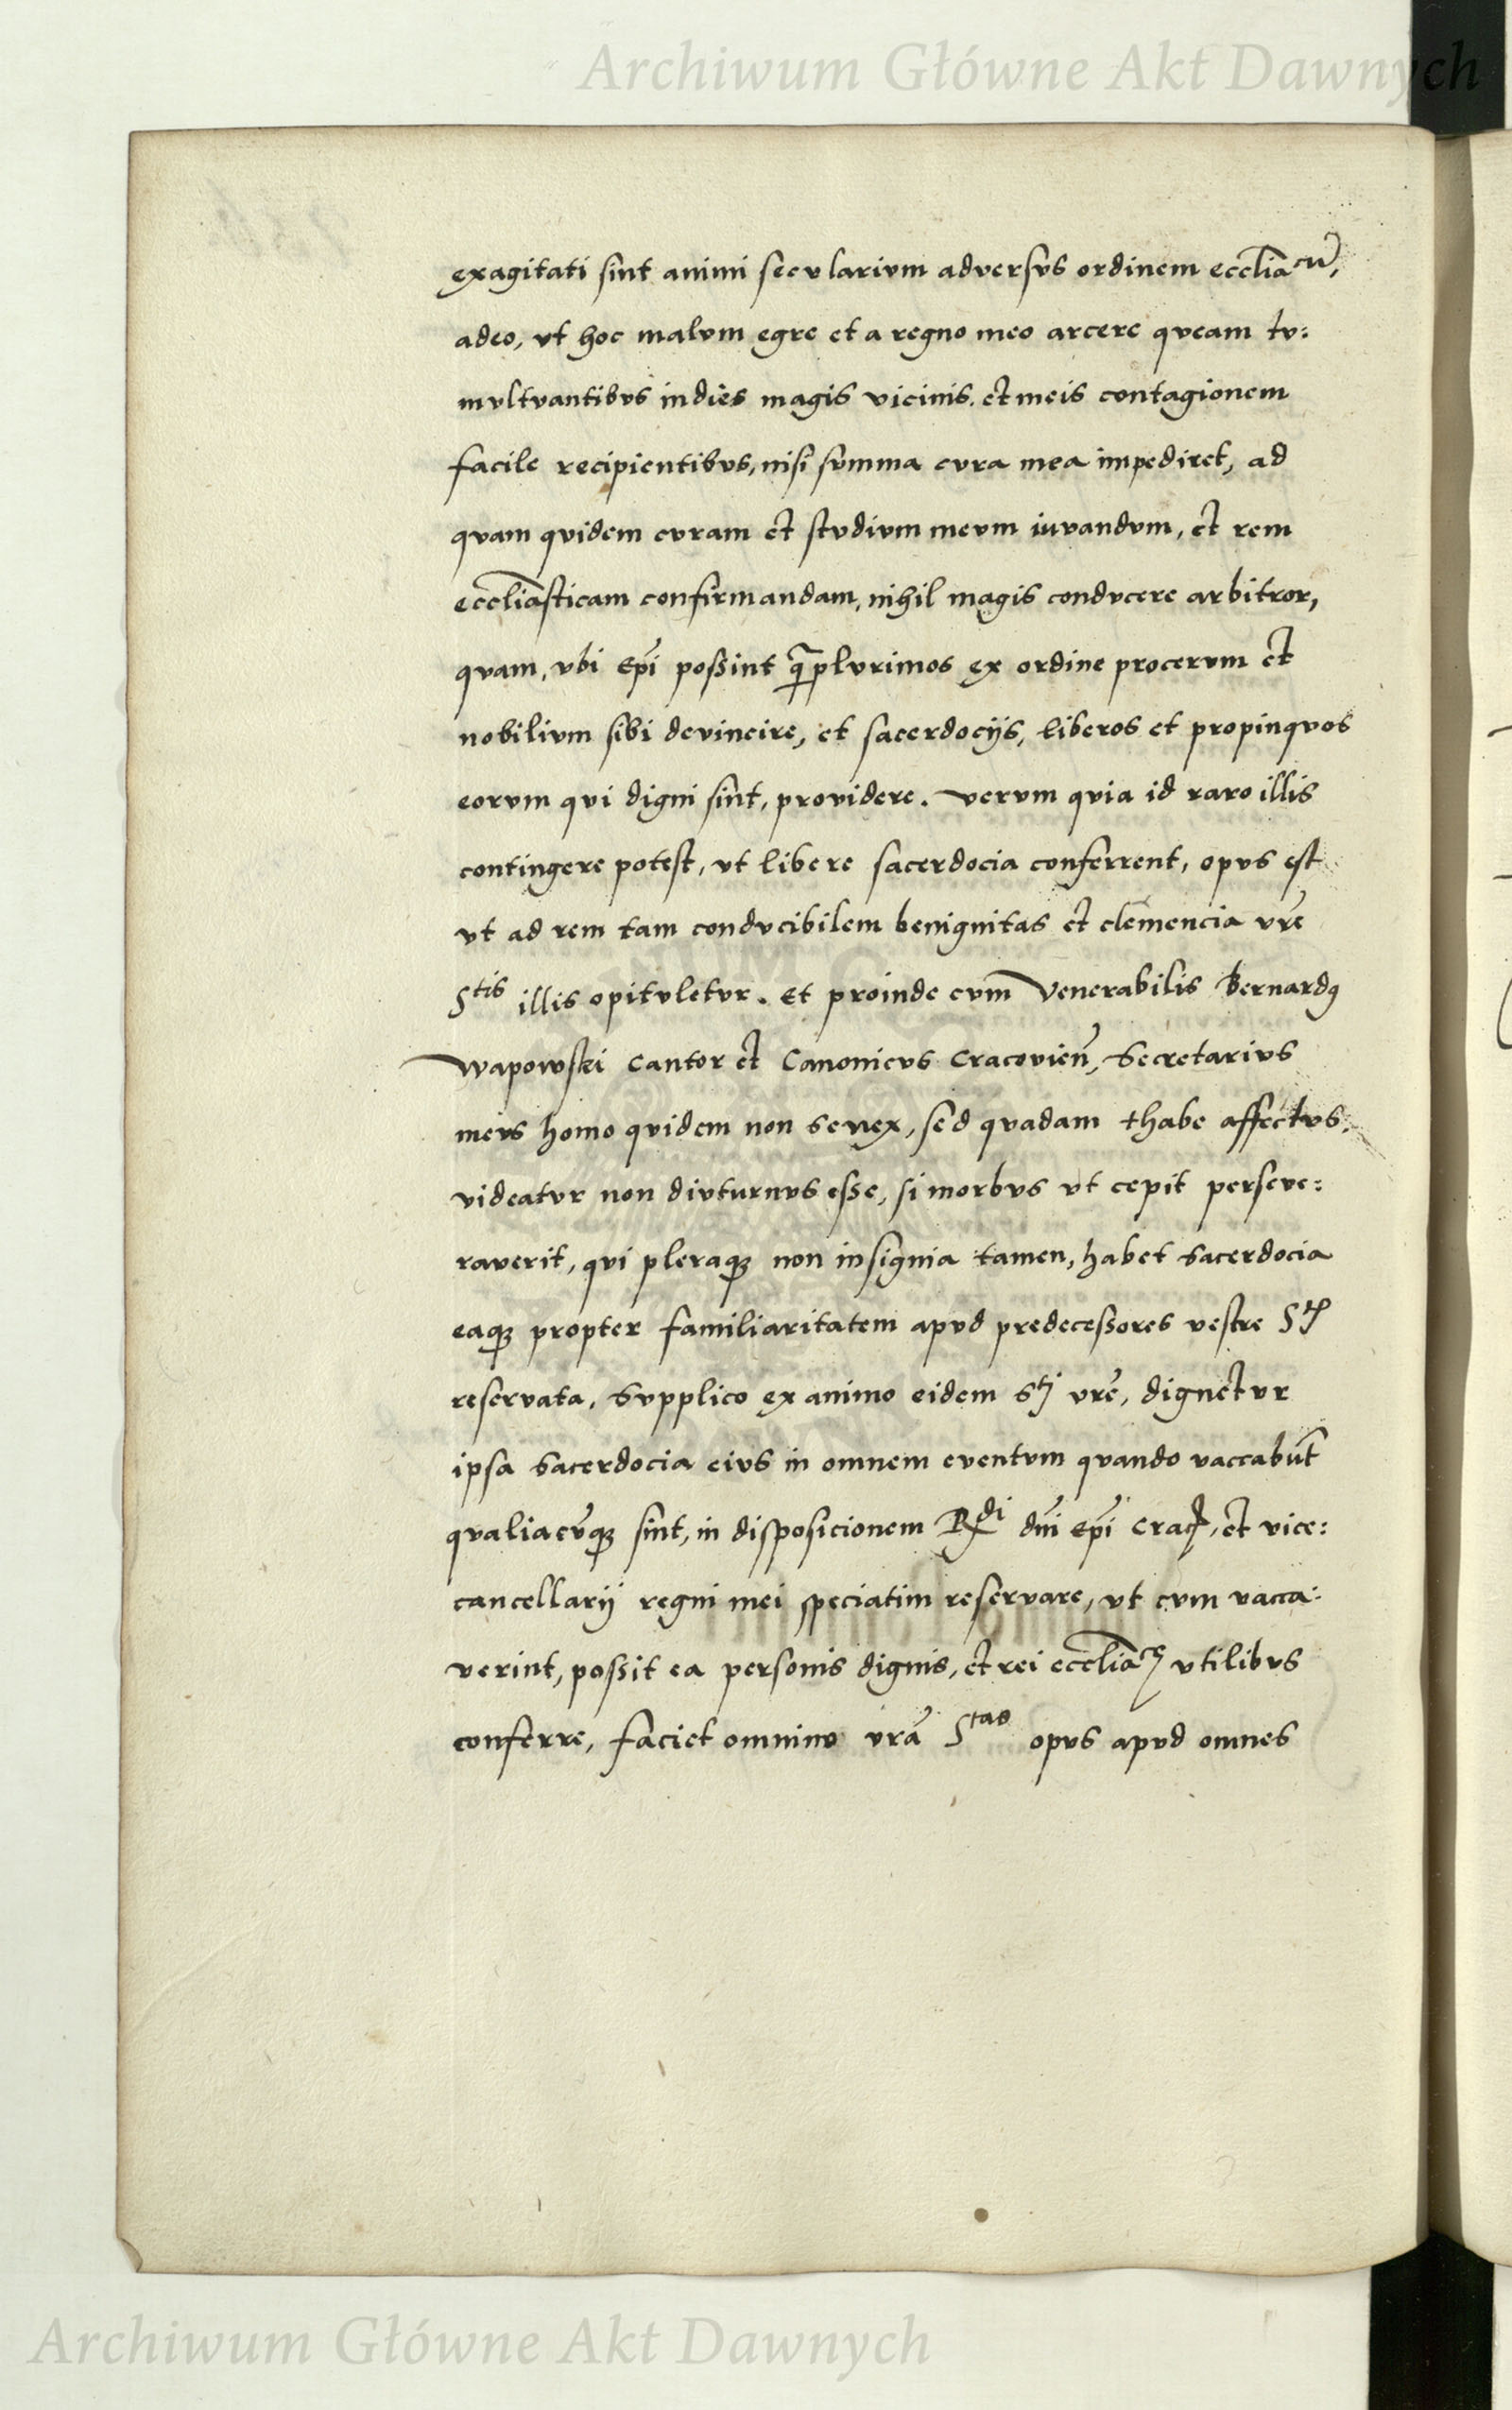 Archiwum Główne Akt Dawnych
exagitati sint animi secularium adversus ordinem eccliacũ,
adeo, ut hoc malum egre et a regno meo arcere queam tu:
multuantibus indies magis vicinis. et meis contagionem
facile recipientibus, nisi summa cura mea impediret, ad
quam quidem curam et studium meum iuvandum, et rem
eccliasticam confirmandam, nihil magis conducere arbitror,
quam, ubi Epi possint q̃plurimos ex ordine procerum et
nobilium sibi devincire, et sacerdocijs, liberos et propinquos
eorum qui digni sint, providere. Verum quia id raro illis
contingere potest, ut libere sacerdocia conferrent, opus est
ut ad rem tam conducibilem benignitas et clemencia vr̃e
Stis illis opituletur. Et proinde cum Venerabilis Bernardꝯ
Wapowski Cantor et Canonicus Cracovien̄, Secretarius
meus homo quidem non senex, sed quadam thabe affectus.
videatur non diuturnus esse, si morbus ut cepit perseve:
raverit, qui pleraqꝫ non insignia tamen, habet sacerdocia
eaqꝫ propter familiaritatem apud predecessores vestre Stis
reservata, Supplico ex animo eidem Sti vr̃e, dignetur
ipsa sacerdocia eius in omnem eventum quando vaccabũt
qualiacũqꝫ sint, in disposicionem Rdi dñi Epi Crac̄, et vice:
cancellarij regni mei speciatim reservare, ut cum vacca:
verint, possit ea personis dignis, et rei eccliace utilibus
conferre, faciet omnino vrã Stas opus apud omnes
Archiwum Główne Akt Dawnych